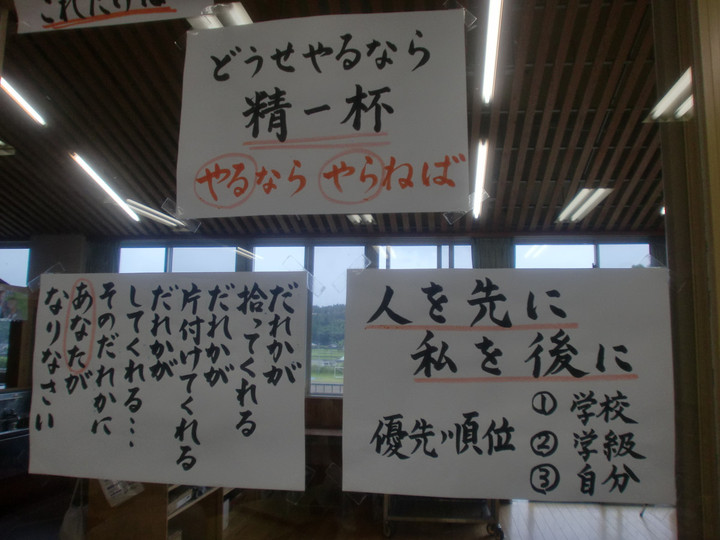 これだけは
どうせやるなら
精一杯
やるなら やらねば
だれかが
拾ってくれる
だれかが
片付けてくれる
だれかが
してくれる…
そのだれかに
あなたが
なりなさい
人を先に
私を後に
優先順位
① 学校
② 学級
③ 自分